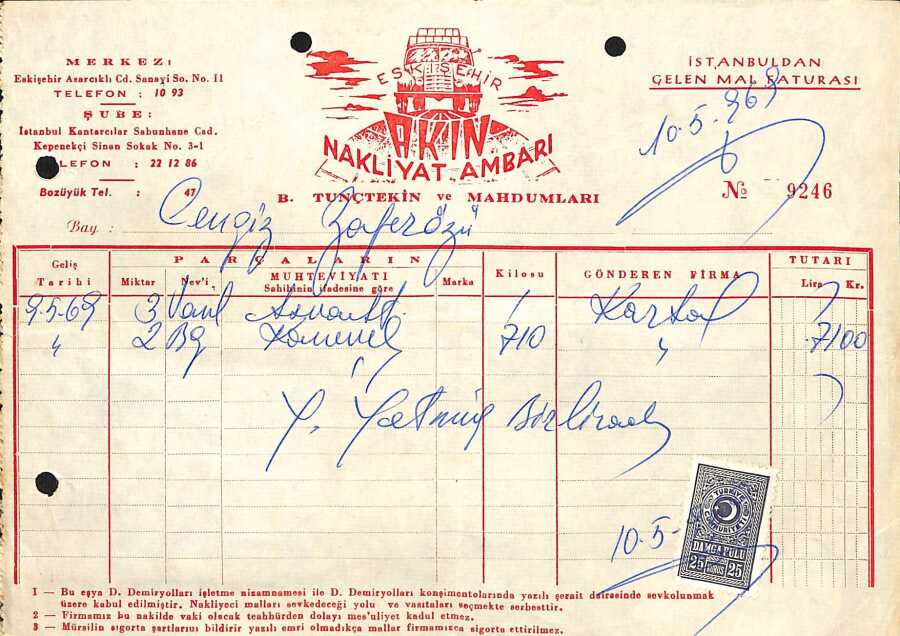 MERKEZ:
Eskişehir Asarcıklı Cd. Sanayi So. No. 11
TELEFON : 10 93
ŞUBE:
İstanbul Kantarcılar Sabunhane Cad.
Kepenekçi Sinan Sokak No. 3-1
LEFON : 22 12 86
Bozüyük Tel. : 47
ESKİŞEHİR
AKIN
NAKLİYAT AMBARI
B. TUNÇTEKİN ve MAHDUMLARI
İSTANBULDAN
GELEN MAL FATURASI
10.5.969
№ 9246
Bay: Cengiz Zaferözü
Geliş Tarihi
PARÇALARIN
Miktar Nev'i MUHTEVİYATI Sahibinin ifadesine göre Marka
Kilosu
GÖNDEREN FİRMA
TUTARI
Lira Kr.
9.5.69 3 Kartal
" 2 Bg 710 " 7100
Y. Yetmiş Birliradır
10.5.
TÜRKİYE
CUMHURİYETİ
DAMGA PULU
25 KURUŞ 25
1 — Bu eşya D. Demiryolları işletme nizamnamesi ile D. Demiryolları konşimentolarında yazılı şerait dairesinde sevkolunmak
üzere kabul edilmiştir. Nakliyeci malları sevkedeceği yolu ve vasıtaları seçmekte serbesttir.
2 — Firmamız bu nakilde vaki olacak teahhürden dolayı mes'uliyet kadul etmez.
3 — Mürsilin sigorta şartlarını bildirir yazılı emri olmadıkça mallar firmamızca sigorta ettirilmez.